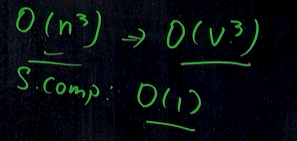 O(n³) → O(V³)
S.comp: O(1)